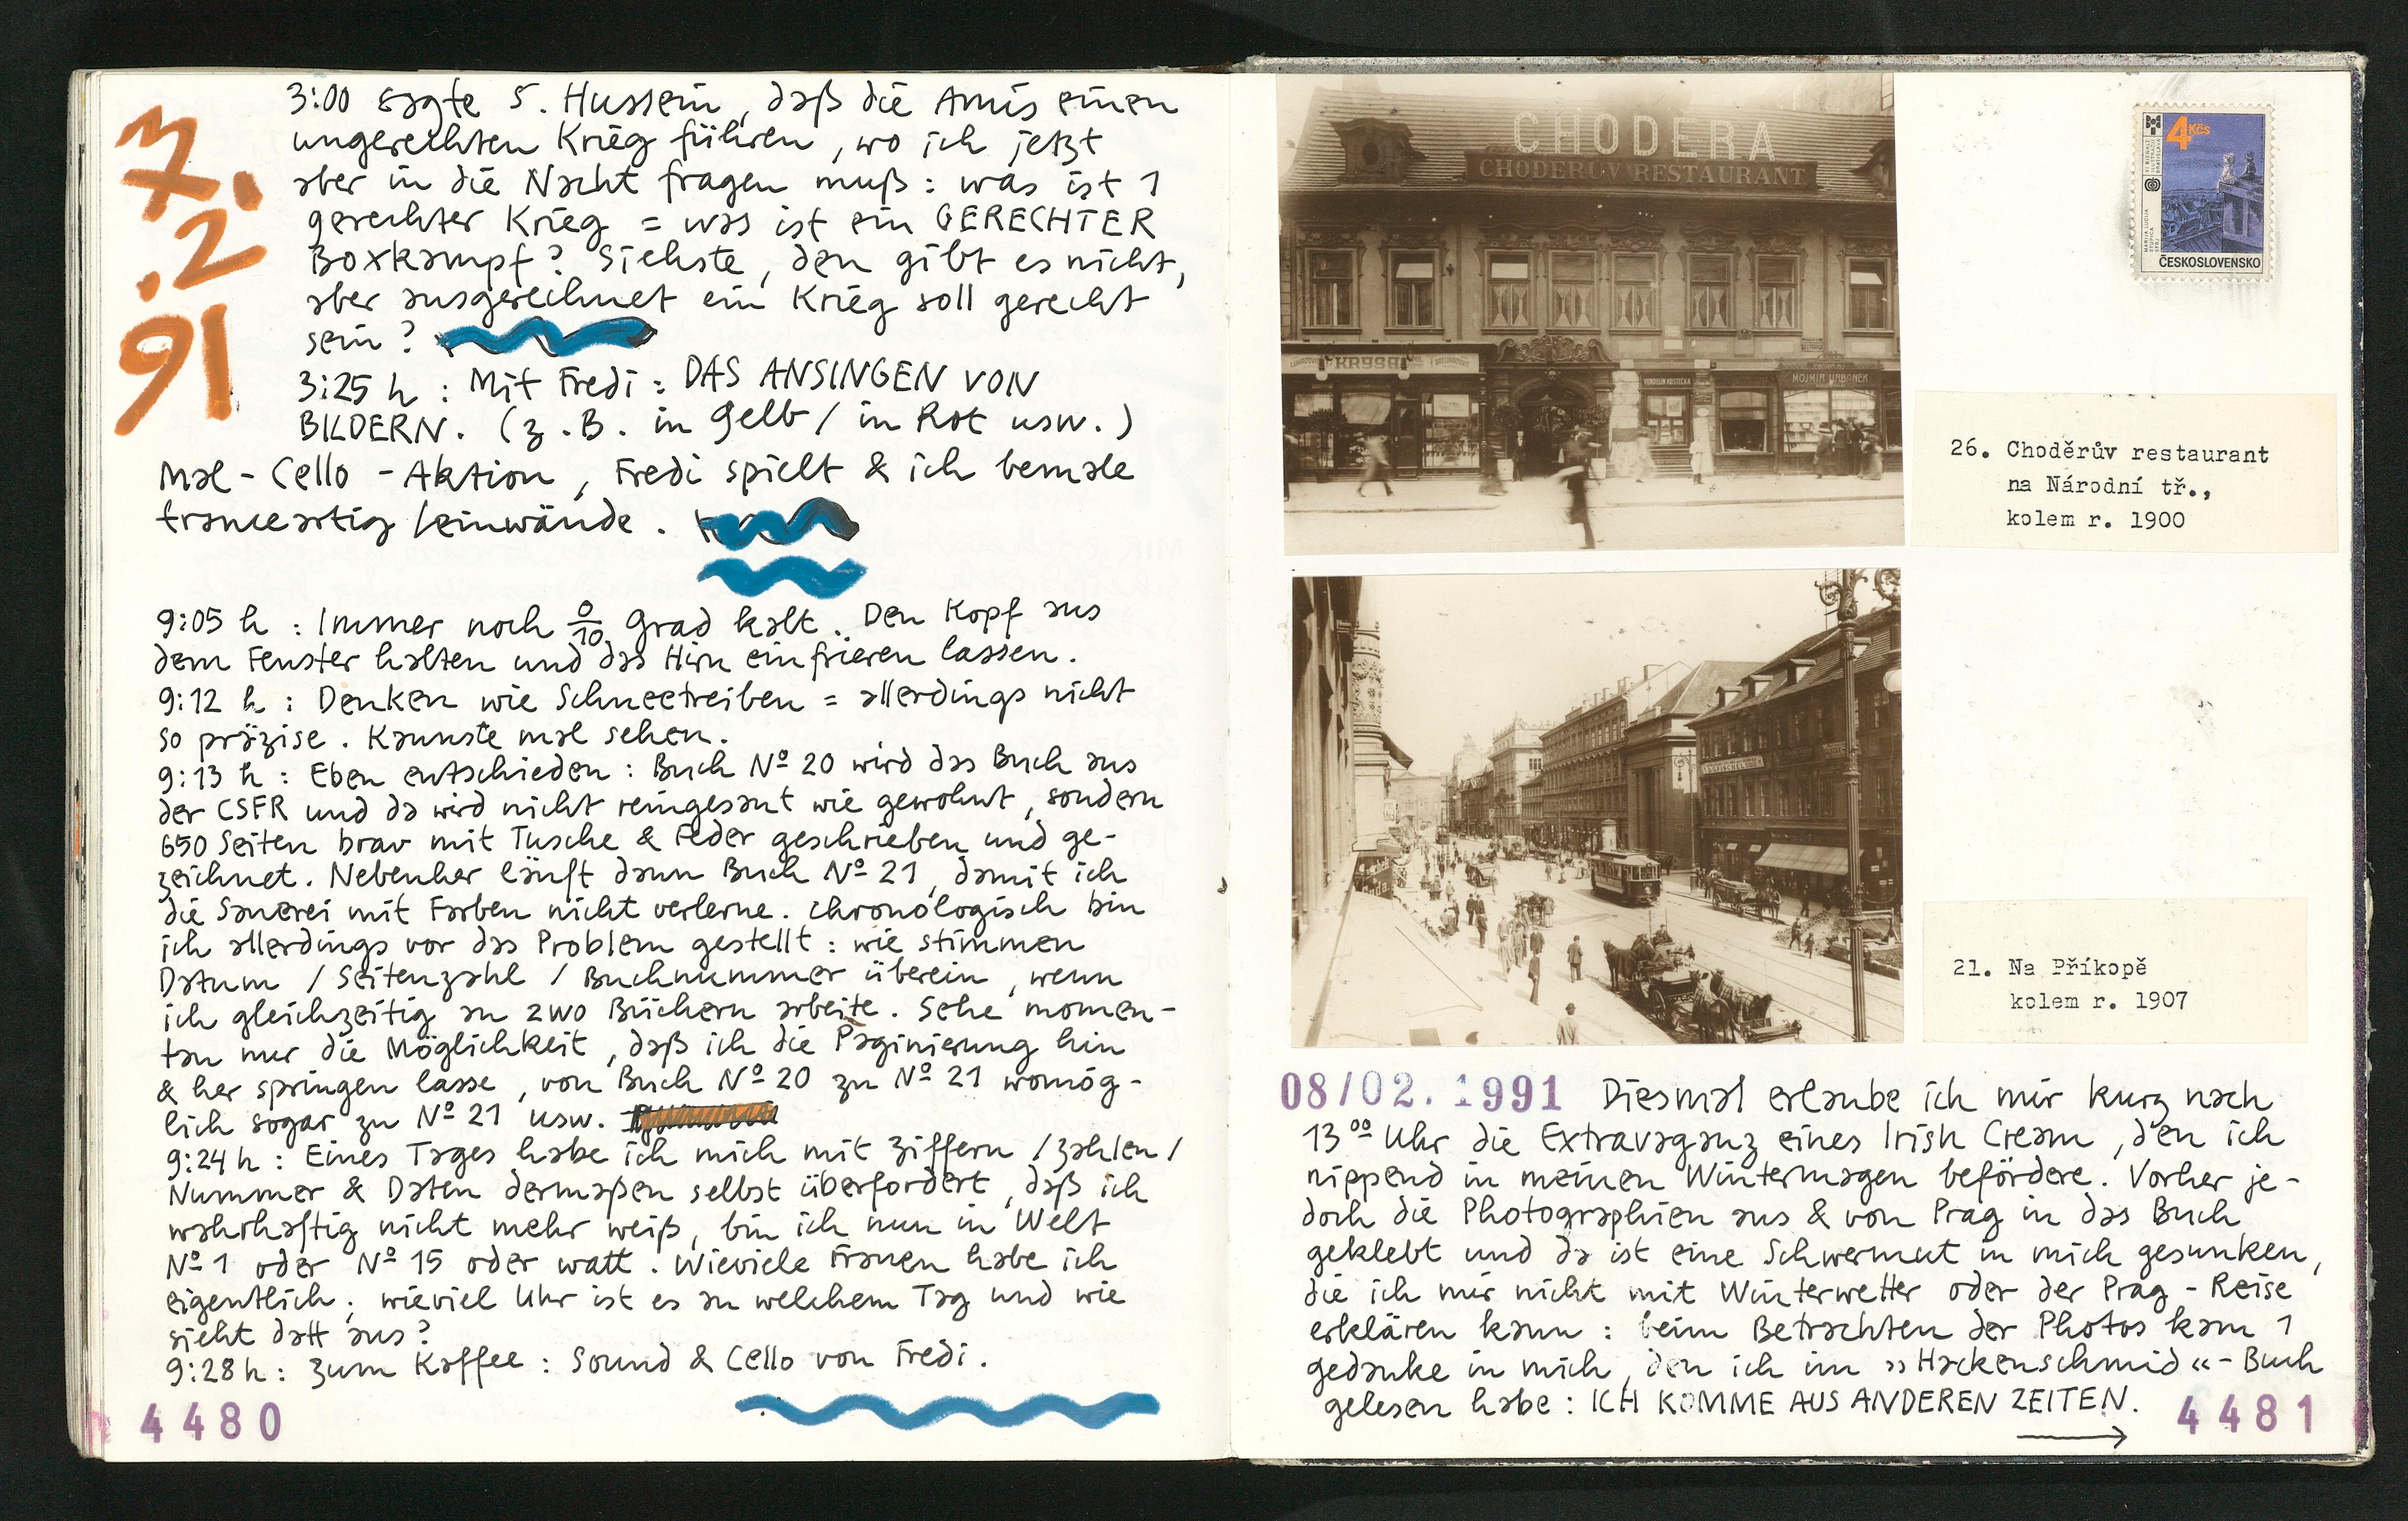 7.
.2
91
3:00 sagte S. Hussein, daß die Amis einen
ungerechten Krieg führen, wo ich jetzt
aber in die Nacht fragen muß: was ist 1
gerechter Krieg = was ist ein GERECHTER
Boxkampf? Siehste, den gibt es nicht,
aber ausgerechnet ein Krieg soll gerecht
sein?
3:25 h: Mit Fredi: DAS ANSINGEN VON
BILDERN. (z.B. in Gelb / in Rot usw.)
Mal-Cello-Aktion, Fredi spielt & ich bemale
tranceartig Leinwände.
9:05 h: Immer noch 0/10 Grad kalt. Den Kopf aus
dem Fenster halten und das Hirn einfrieren lassen.
9:12 h: Denken wie Schneetreiben = allerdings nicht
so präzise. Kannste mal sehen.
9:13 h: Eben entschieden: Buch Nº 20 wird das Buch aus
der CSFR und da wird nicht reingesaut wie gewohnt, sondern
650 Seiten brav mit Tusche & Feder geschrieben und ge-
zeichnet. Nebenher läuft dann Buch Nº 21, damit ich
die Sauerei mit Farben nicht verlerne. Chronologisch bin
ich allerdings vor das Problem gestellt: wie stimmen
Datum / Seitenzahl / Buchnummer überein, wenn
ich gleichzeitig an zwo Büchern arbeite. Sehe momen-
tan nur die Möglichkeit, daß ich die Paginierung hin
& her springen lasse, von Buch Nº 20 zu Nº 21 womög-
lich sogar zu Nº 21 usw.
9:24 h: Eines Tages habe ich mich mit Ziffern / Zahlen /
Nummer & Daten dermaßen selbst überfordert, daß ich
wahrhaftig nicht mehr weiß, bin ich nun in Welt
Nº 1 oder Nº 15 oder watt. Wieviele Frauen habe ich
eigentlich; wieviel Uhr ist es an welchem Tag und wie
sieht datt aus?
9:28 h: Zum Kaffee: Sound & Cello von Fredi.
4480
CHODERA
CHODĚRŮV RESTAURANT
KRYSA
VENDELÍN KOSTEČKA
MOJMÍR URBÁNEK
4 Kčs
ČESKOSLOVENSKO
26. Choděrův restaurant
na Národní tř.,
kolem r. 1900
21. Na Příkopě
kolem r. 1907
08/02.1991 Diesmal erlaube ich mir kurz nach
13⁰⁰ Uhr die Extravaganz eines Irish Cream, den ich
nippend in meinen Wintermagen befördere. Vorher je-
doch die Photographien aus & von Prag in das Buch
geklebt und da ist eine Schwermut in mich gesunken,
die ich mir nicht mit Winterwetter oder der Prag-Reise
erklären kann: beim Betrachten der Photos kam 1
Gedanke in mich, den ich im »Hackenschmid«-Buch
gelesen habe: ICH KOMME AUS ANDEREN ZEITEN.
→
4481